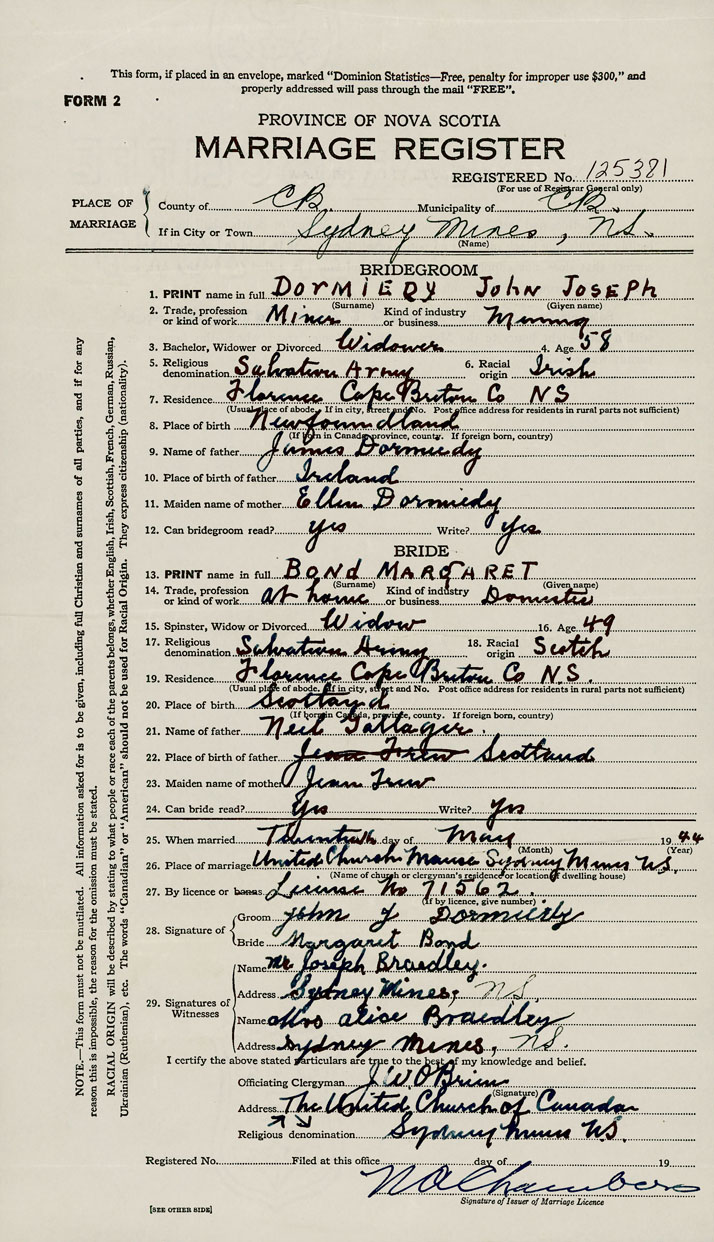 This form, if placed in an envelope, marked "Dominion Statistics—Free, penalty for improper use $300," and
properly addressed will pass through the mail "FREE".
FORM 2
PROVINCE OF NOVA SCOTIA
MARRIAGE REGISTER
REGISTERED No. 125381
(For use of Registrar General only)
PLACE OF MARRIAGE
County of CB Municipality of CB.
If in City or Town Sydney Mines, N.S.
(Name)
BRIDEGROOM
1. PRINT name in full DORMIEDY JOHN JOSEPH
(Surname) (Given name)
2. Trade, profession or kind of work Miner Kind of industry or business Mining
3. Bachelor, Widower or Divorced Widower 4. Age 58
5. Religious denomination Salvation Army 6. Racial origin Irish
7. Residence Florence Cape Breton Co NS
(Usual place of abode. If in city, street and No. Post office address for residents in rural parts not sufficient)
8. Place of birth Newfoundland
(If born in Canada, province, county. If foreign born, country)
9. Name of father James Dormiedy
10. Place of birth of father Ireland
11. Maiden name of mother Ellen Dormiedy
12. Can bridegroom read? yes Write? yes
BRIDE
13. PRINT name in full BOND MARGARET
(Surname) (Given name)
14. Trade, profession or kind of work at home Kind of industry or business Domestic
15. Spinster, Widow or Divorced Widow 16. Age 49
17. Religious denomination Salvation Army 18. Racial origin Scotch
19. Residence Florence Cape Breton Co N.S.
(Usual place of abode. If in city, street and No. Post office address for residents in rural parts not sufficient)
20. Place of birth Scotland
(If born in Canada, province, county. If foreign born, country)
21. Name of father Neil Gallager.
22. Place of birth of father Jean Frew Scotland
23. Maiden name of mother Jean Frew
24. Can bride read? Yes Write? yes
25. When married Twentieth day of May 1944
(Month) (Year)
26. Place of marriage United Church Manse Sydney Mines NS.
(Name of church or clergyman's residence or location of dwelling house)
27. By licence or banns. License No 71562.
(If by licence, give number)
28. Signature of
Groom John J Dormiedy
Bride Margaret Bond
29. Signatures of Witnesses
Name Mr Joseph Braedley.
Address Sydney Mines, N.S.
Name Mrs Alice Braedley
Address Sydney Mines, N.S.
I certify the above stated particulars are true to the best of my knowledge and belief.
Officiating Clergyman J.W. O'Brien
(Signature)
Address The United Church of Canada
Religious denomination Sydney Mines NS.
Registered No. Filed at this office day of 19
Chambers
Signature of Issuer of Marriage Licence
[SEE OTHER SIDE]
NOTE.—This form must not be mutilated. All information asked for is to be given, including full Christian and surnames of all parties, and if for any
reason this is impossible, the reason for the omission must be stated.
RACIAL ORIGIN will be described by stating to what people or race each of the parents belongs, whether English, Irish, Scottish, French, German, Russian,
Ukrainian (Ruthenian), etc. The words "Canadian" or "American" should not be used for Racial Origin. They express citizenship (nationality).